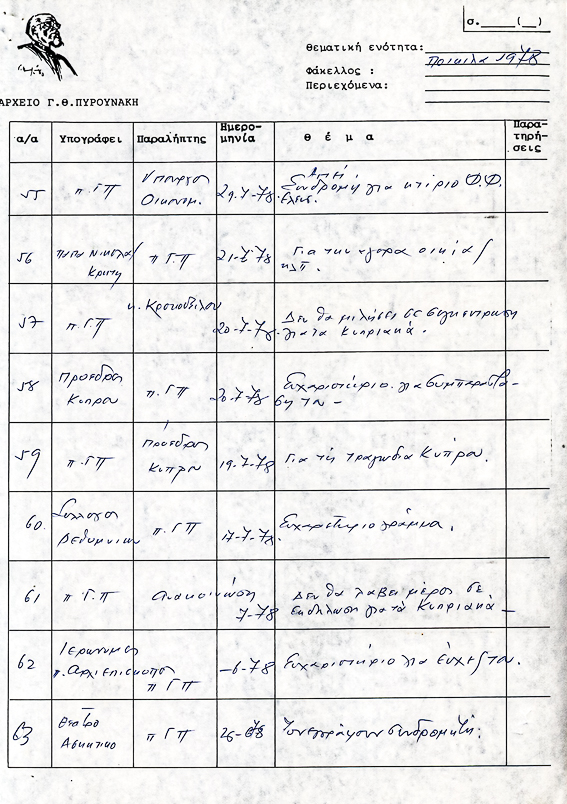 σ.____(__)
Θεματική ενότητα: Ποικιλα 1978
Φάκελλος :
Περιεχόμενα:
ΑΡΧΕΙΟ Γ.Θ.ΠΥΡΟΥΝΑΚΗ
α/α Υπογράφει Παραλήπτης Ημερο-μηνία Θ έ μ α Παρα-τηρή-σεις
55 π. Γ Π Υπουργο Οικονομ. 29-7-78 Συνδρομή για κτίριο Φ.Φ. Ελευσ.
56 Κρητη π Γ Π 21-7-78 Για την αγορα οικία
57 π. Γ Π κ. Κροκοδειλου 20-7-78 Δεν θα μιλήσει σε συγκεντρωση για τα Κυπριακά.
58 Προεδρο Κυπρου π. Γ Π 20-7-78 Ευχαριστήριο για συμπαραστα-ση του –
59 π. Γ Π Πρόεδρο Κυπρου 19-7-78 Για τη τραγωδια Κυπρου.
60. Συλλογοι Ρεθυμνιων π. Γ Π 17-7-78 Ευχαριστηριο γράμμα.
61 π Γ. Π ανακοινωση 7-78 Δεν θα λαβει μέρος σέ εκδηλωση για τά Κυπριακά –
62 Ιερωνυμος π. Αρχιεπισκοπος π Γ Π –6-78 Ευχαριστήριο για ευχες του.
63 Θεατρο Ασκητικο π Γ Π 26-6-78 Τον εγραψαν συνδρομητη.